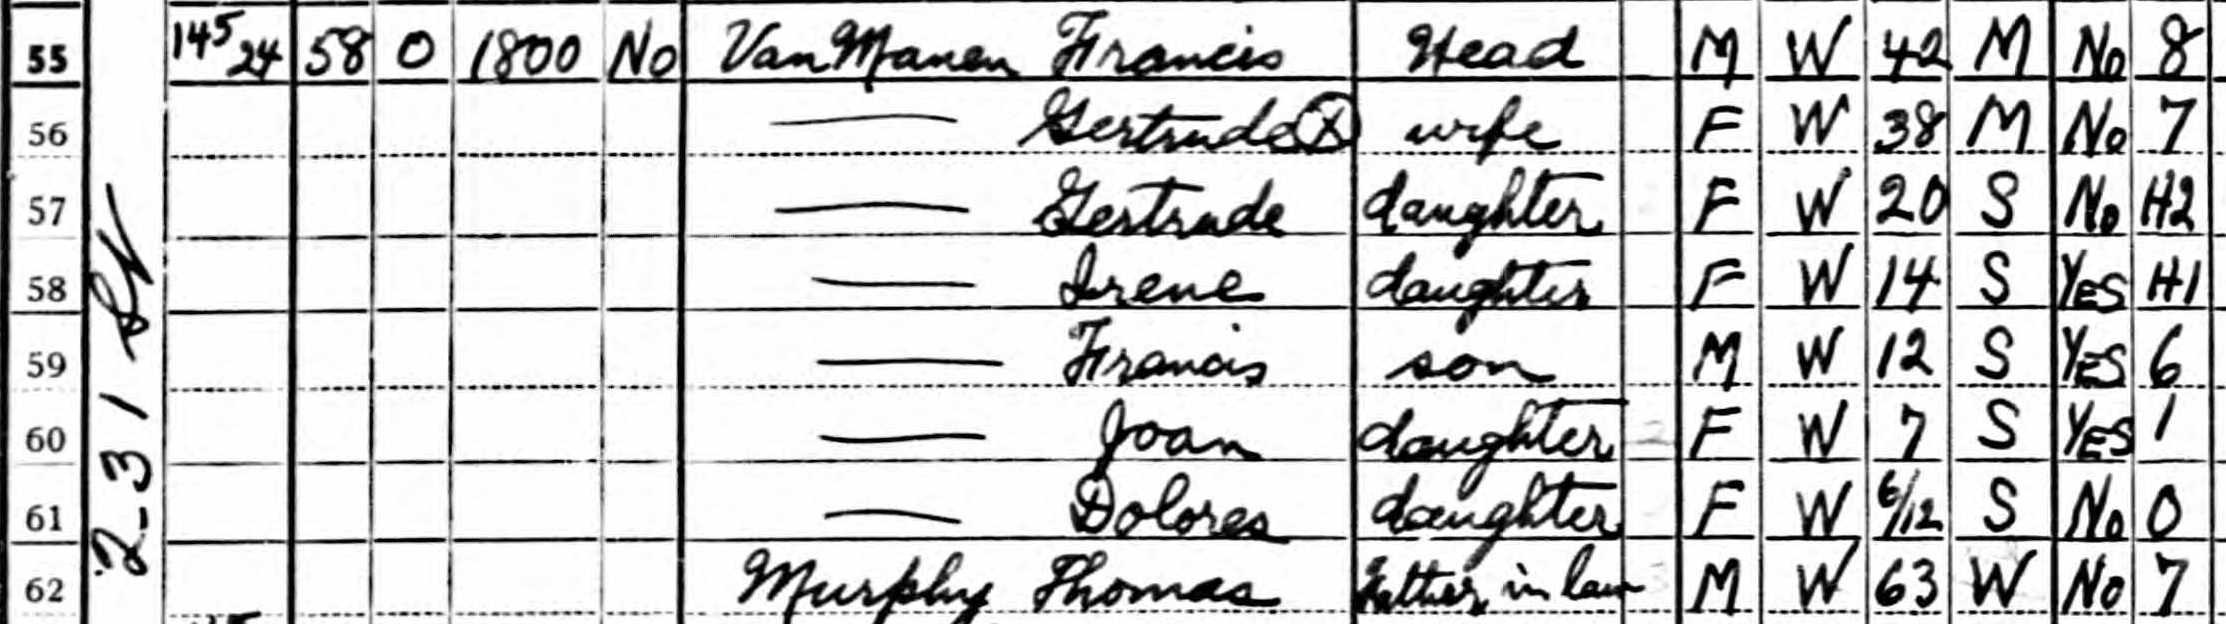 55 145 24 58 O 1800 No Van Manen Francis Head M W 42 M No 8
56 —— Gertrude Ⓧ wife F W 38 M No 7
57 —— Gertrude daughter F W 20 S No H2
58 —— Irene daughter F W 14 S YES H1
59 —— Francis son M W 12 S YES 6
60 —— Joan daughter F W 7 S YES 1
61 —— Dolores daughter F W 6/12 S No 0
62 Murphy Thomas Father in law M W 63 W No 7
231